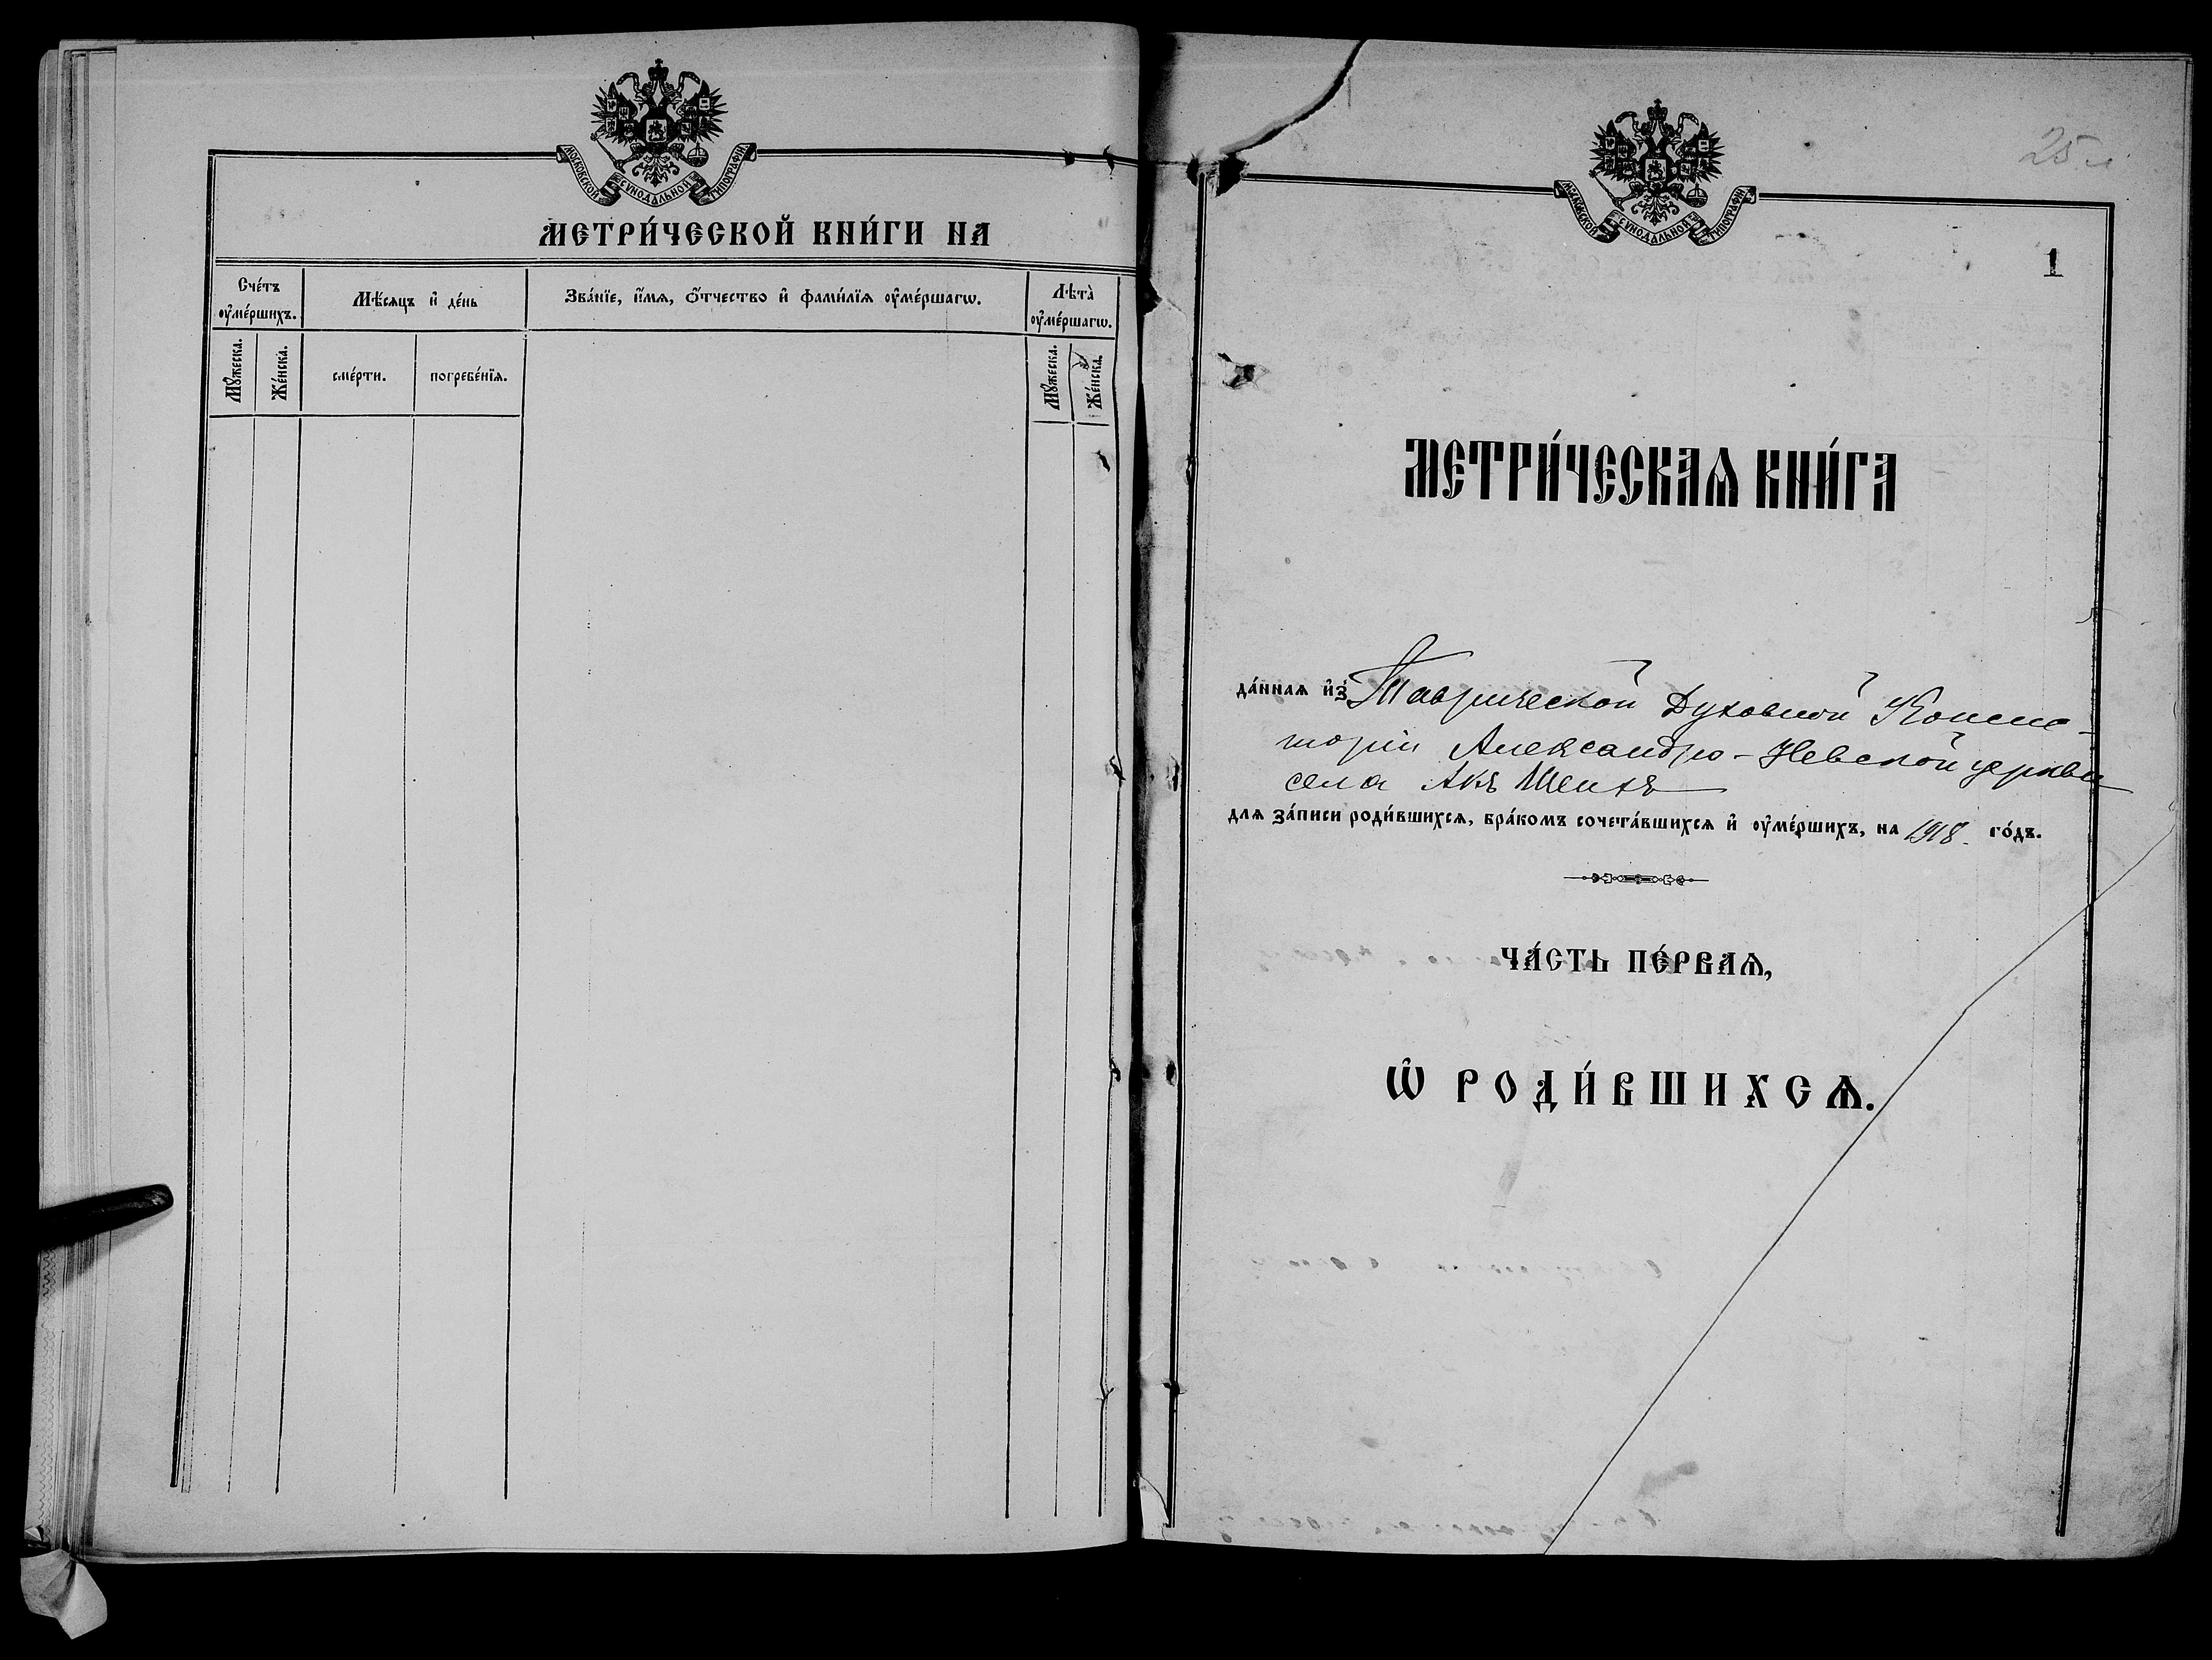 МОСКОВСКОЙ СѴНОДАЛЬНОЙ ТИПОГРАФІИ
МЕТРИ́ЧЕСКОЙ КНИ́ГИ НА
Сче́тъ ᲂу҆ме́ршихъ.
Мѣ́сѧцъ и҆ де́нь
Зва́нїе, и҆́мѧ, ѻ҆́тчество и҆ фами́лїѧ ᲂу҆ме́ршагѡ.
Лѣта̀ ᲂу҆ме́ршагѡ.
Мꙋ́жеска.
Же́нска.
сме́рти.
погребе́нїѧ.
Мꙋ́жеска.
Же́нска.
25 л.
МОСКОВСКОЙ СѴНОДАЛЬНОЙ ТИПОГРАФІИ
1
МЕТРИ́ЧЕСКАѦ КНИ́ГА
да́ннаѧ и҆з̾ Таврической Духовной Консис-
торіи Александро-Невской церкви
села Акъ Шеихъ
длѧ за́писи роди́вшихсѧ, бра́комъ сочета́вшихсѧ и҆ ᲂу҆ме́ршихъ, на 1918. го́дъ.
ЧА́СТЬ ПЕ́РВАѦ,
Ѡ҆ РОДИ́ВШИХСѦ.